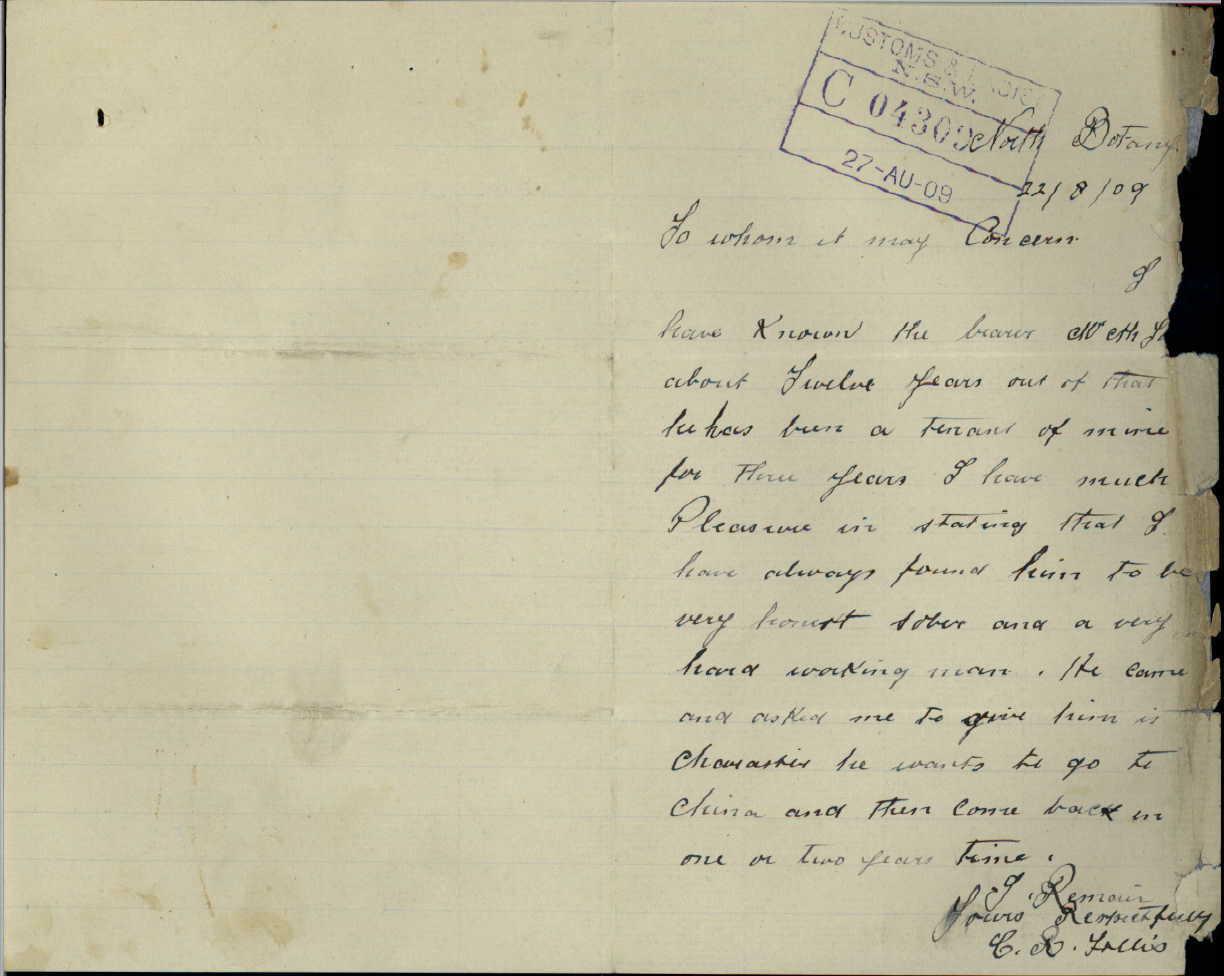 CUSTOMS &
N.S.W.
C 04309
27-AU-09
North Botany
22/8/09
To whom it may Concern
I
have Known the bearer Mr Ah
about Twelve years out of that
he has been a tenant of mine
for three years I have much
Pleasure in stating that I
have always found him to be
very honest sober and a very
hard working man. He came
and asked me to give him is
Character he wants to go to
China and then Come back in
one or two years time.
I Remain
Yours Respectfully
C. R.